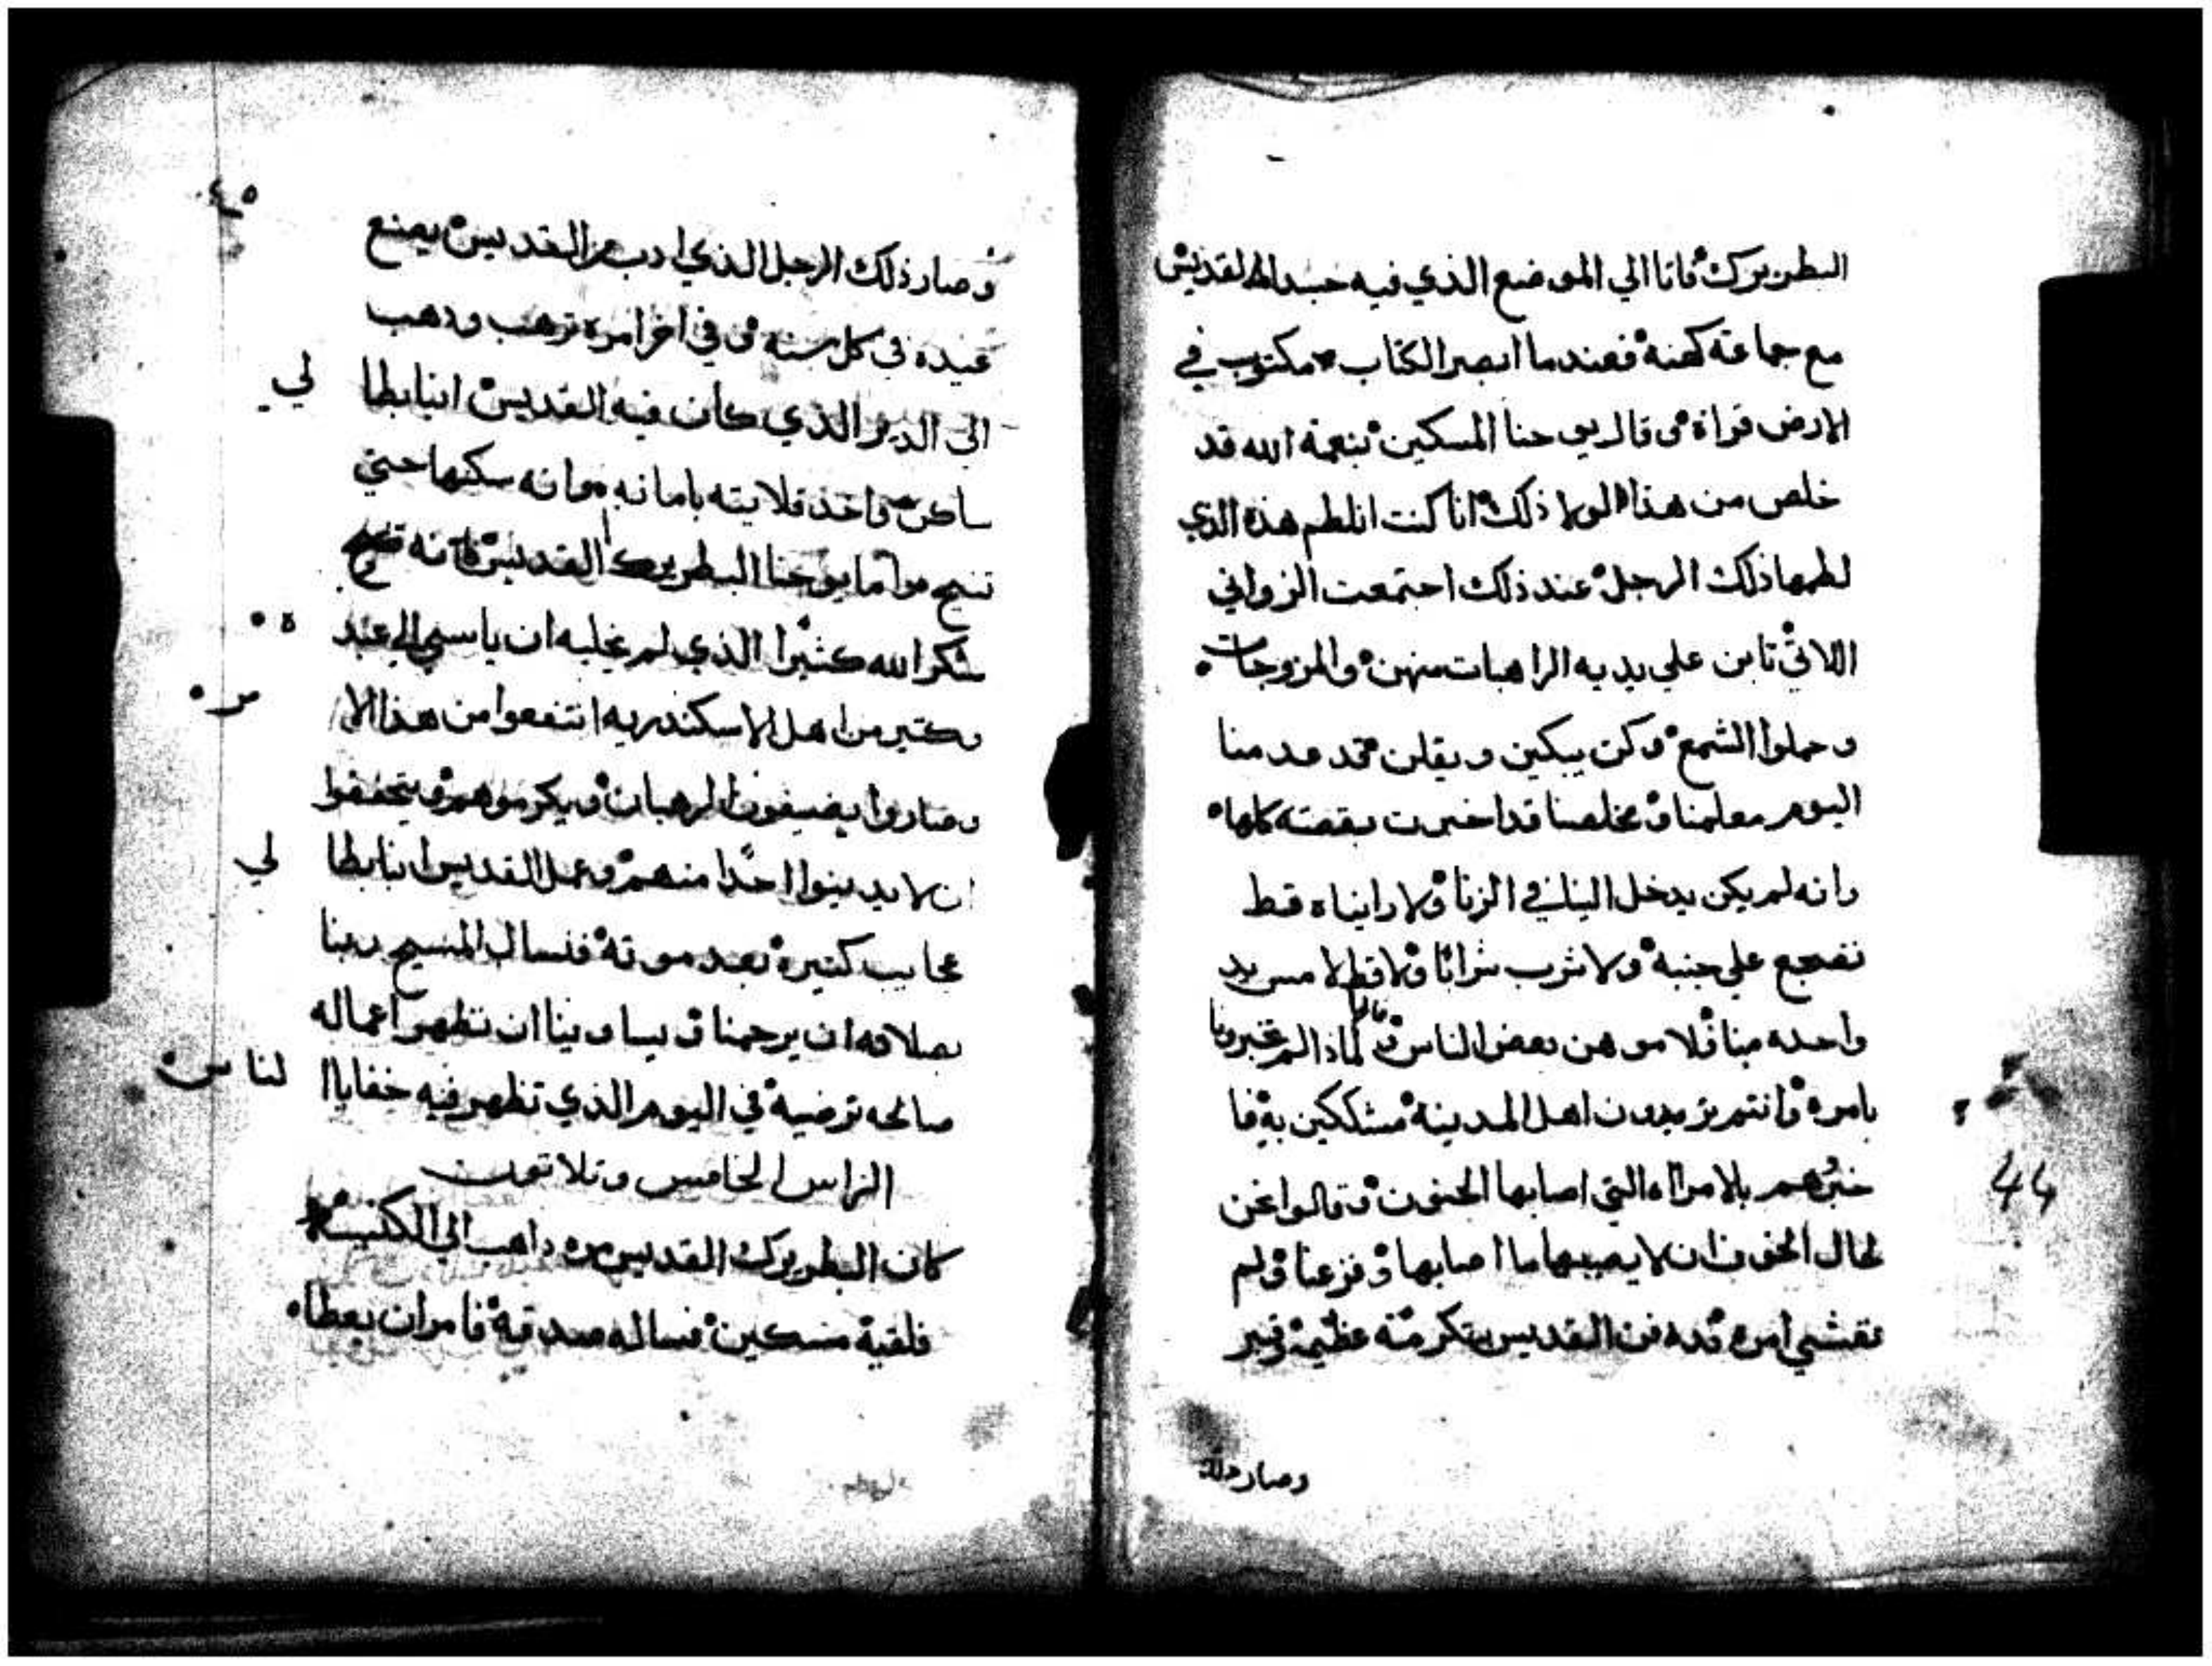 البطريرك فاتا الي الموضع الذي فيه جسد القديس
مع جماعة كهنة فعندما ابصر الكتاب مكتوب في
الارض قراة قال يوحنا المسكين بنعمة الله قد
خلص من هذا لولا ذلك انا كنت اتلطم هذه الذي
لطمها ذلك الرجل عند ذلك اجتمعت الزواني
اللاتي تابن علي يديه الراهبات منهن والمزوجات
وحملوا الشمع وكن يبكين ويقلن قد عدمنا
اليوم معلمنا ومخلصنا قد اخبرت بقصته كلها
وانه لم يكن يدخل الينا في الزنا ولا رايناه قط
نضجع علي جنبه ولا شرب شرابا ولا قط لامس يد
واحده منا فلاموهن بعض الناس وقالوا لماذا لم تخبرونا
بامره وانتم تريدون اهل المدينة مشككين به فا
خبرهم بالامراه التي اصابها الجنون وقالوا نحن
لحال الخوف ان لا يصيبها ما اصابها وفزعنا ولم
نفشي امره فدفن القديس بتكرمة عظيمة وقبر
وصار ذلك
44
٤٥
وصار ذلك الرجل الذي ادب من القديس يصنع
عيده في كل سنه وفي اخر امره ترهب وذهب
الي الدير الذي كان فيه القديس انبا بطا لي
ساكن واخذ قلايته بامانه وانه سكنها حتي
تنيح واما يوحنا البطريرك القديس فانه
شكر الله كثيرا الذي لم يخليه ان ياسي الي عبد ه
وكتير من اهل الاسكندريه انتفعوا من هذا الا مر
وصاروا يضيفون الرهبان ويكرموهم ويتحفظوا
ان لا يدينوا احدا منهم وعمل القديس انبا بطا لي
عجايب كتيره بعد موته فنسال المسيح ربنا
بصلاته ان يرحمنا ويساوينا ان تظهر اعماله
صالحه ترضيه في اليوم الذي تظهر فيه خفايا ا لناس
الراس الخامس وتلاتون
كان البطريرك القديس مره داهب الي الكنيسه
فلقيه مسكين فساله صدقه فامر ان يعطاه